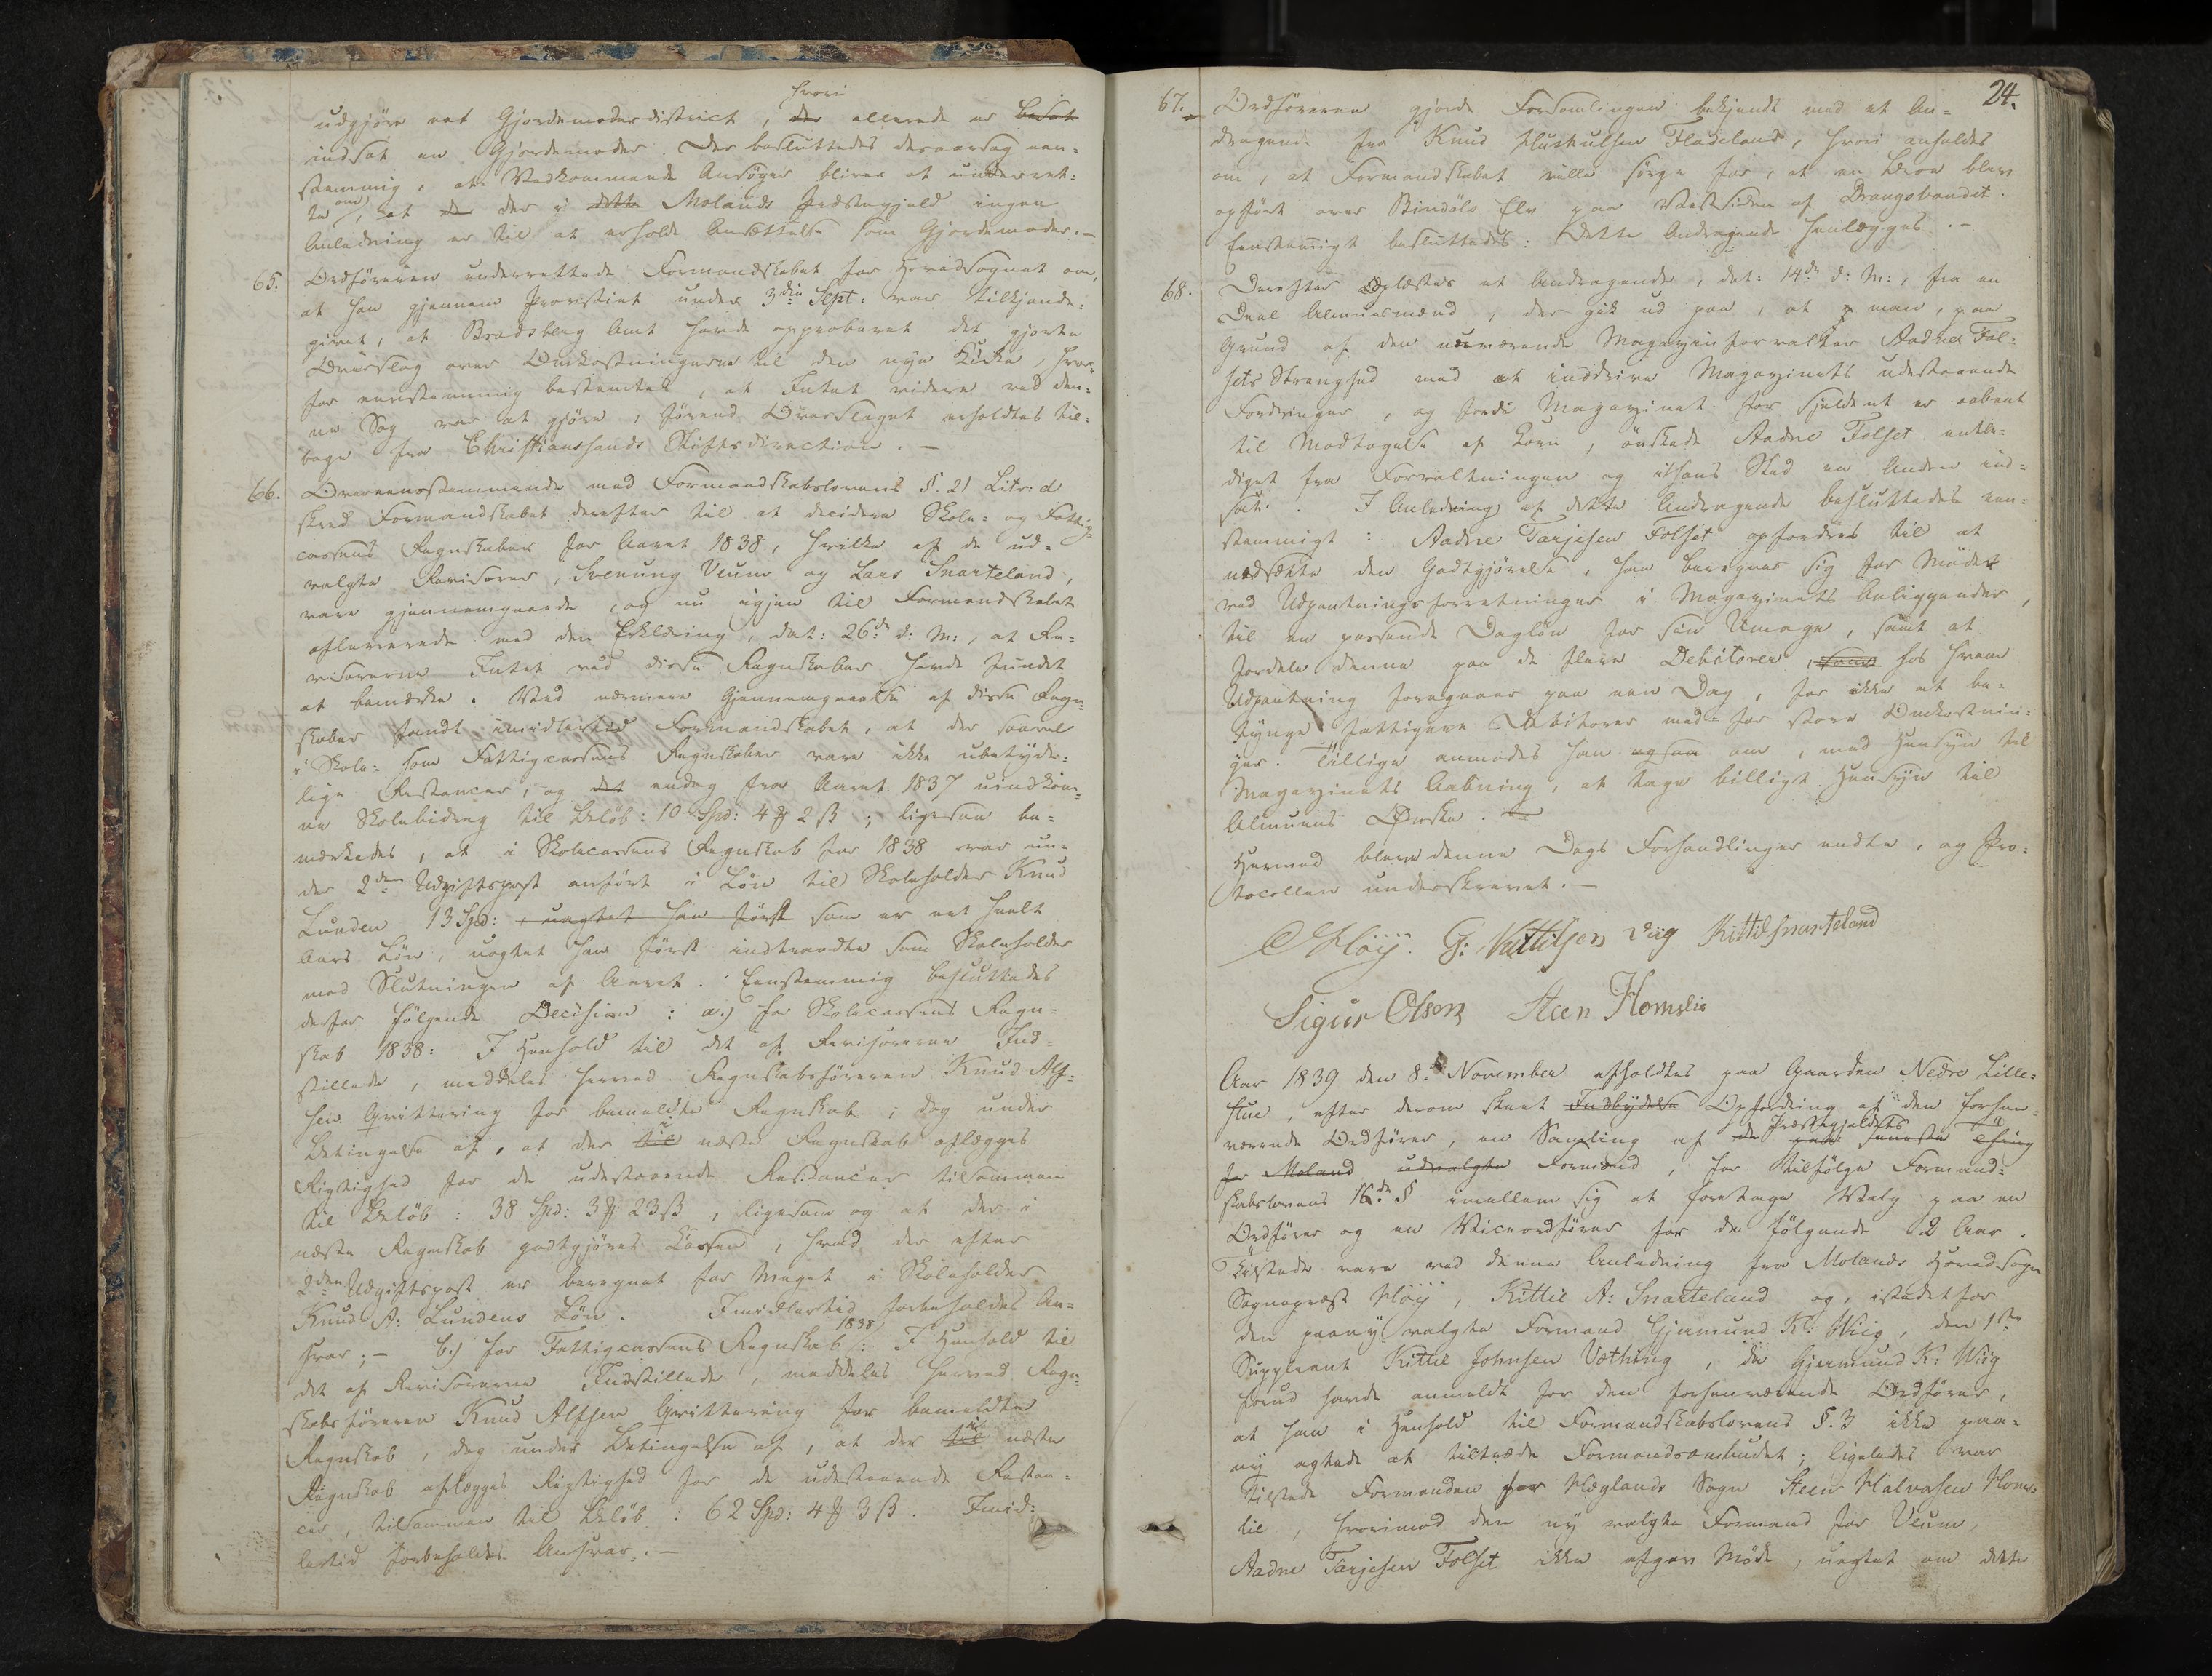 hvori
udgjøre eet Gjordemoderdistrict, der allerede er besat
indsat en Gjordemoder. Der besluttedes desaarsag een=
stemmig, at Vedkommende Ansøger bliver at underret=
te om, at de der i dette Molands Præstegjeld ingen
Anledning er til at erholde Ansættelse som Gjordemoder.—
65. Ordføreren underrettede Formandskabet for Hovedsognet om,
at han gjennem Provstiet under 3die Sept: var tilkjende=
givet, at Bradsberg Amt havde approberet det gjorte
Overslag over Omkostningerne til den nye Kirke, hvor=
for eenstemmig bestemtes, at Intet videre ved den=
ne Sag var at gjøre, førend Overslaget erholdtes til=
bage fra Christianssands Stiftsdirection.—
66. Overeensstemmende med Formandskabslovens §. 21 Litr: d
skred Formandskabet derefter til at decidere Skole= og Fattig=
cassens Regnskaber for Aaret 1838, hvilke af de ud=
valgte Revisorer, Svenung Veum og Lars Snarteland,
vare gjennemgaaede, og nu igjen til Formandskabet
afleverede med den Erklæring, dat: 26de d: M:, at Re=
visorerne Intet ved disse Regnskaber havde fundet
at bemærke. Ved nærmere Gjennemgaaelse af disse Regn=
skaber fandt imidlertid Formandskabet, at der saavel
i Skole= som Fattigcassens Regnskaber vare ikke ubetyde=
lige Restancer, og det endog fra Aaret 1837 uindkom=
ne Skolebidrag til Beløb: 10 Spd: 4 ƥ 2 ß; ligesaa be=
mærkedes, at i Skolecassens Regnskab for 1838 var un=
der 2den Udgiftspost anført i Løn til Skoleholder Knud
Lunden 13 Spd:, uagtet han først som er eet heelt
Aars Løn, uagtet han først indtraadte som Skoleholder
med Slutningen af Aaret. Eenstemmig besluttedes
derfor følgende Decision: a.) for Skolecassens Regn=
skab 1838: I Henhold til det af Revisorerne Ind=
stillede, meddeles herved Regnskabsføreren Knud Alf=
sen Qvittering for bemeldte Regnskab, dog under
Betingelse af, at der til i næste Regnskab aflægges
Rigtighed for de udestaaende Restancer tilsammen
til Beløb: 38 Spd: 3 ƥ 23 ß, ligesom og at der i
næste Regnskab godtgjøres Cassen, hvad der efter
2den Udgiftspost er beregnet for meget i Skoleholder
Knud A: Lundens Løn. Imidlertid forbeholdes An=
svar;— b.) for Fattigcassens Regnskab 1838: I Henhold til
det af Revisorerne Indstillede, meddeles herved Regn=
skabsføreren Knud Alfsen Qvittering for bemeldte
Regnskab, dog under Betingelse af, at der til i næste
Regnskab aflægges Rigtighed for de udestaaende Restan=
cer, tilsammen til Beløb: 62 Spd: 4 ƥ 3 ß. Imid=
lertid forbeholdes Ansvar.—
24.
67. Ordføreren gjorde Forsamlingen bekjendt med et An=
dragende fra Knud Fladeland, hvori anholdes
om, at Formandskabet ville sørge for, at en Broe blev
opført over Bindøls Elv paa Vestsiden af Drangsvandet.
Eenstemigt besluttedes: Dette Andragende henlægges.—
68. Derefter oplæstes et Andragende, dat: 14de d: M:, fra en
Deel Almuesmænd, der gik ud paa, at man, paa
Grund af den nuværende Magazinforvalter Aadne Fol=
sets Strenghed med at inddrive Magazinets udestaaende
Fordringer, og fordi Magazinet for sjeldent er aabent
til Modtagelse af Korn, ønskede Aadne Folset entle=
diget fra Forvaltningen og i hans Sted en Anden ind=
sat. I Anledning af dette Andragende besluttedes een=
stemmigt: Aadne Tarjesen Folset opfordres til at
nedsætte den Godtgjørelse, han beregner sig for Møder
ved Udpantningsforretninger i Magazinets Anliggender,
til en passende Dagløn for sin Umage, samt at
fordele denne paa de flere Debitorer, som hos hvem
Udpantning foregaaer paa een Dag, for ikke at be=
tynge fattigere Debitorer med for store Omkostnin=
ger. Tillige anmodes han ogsaa om, med Hensyn til
Magazinets Aabning, at tage billigt Hensyn til
Almuens Ønske.—
Hermed bleve denne Dags Forhandlinger endte, og Pro=
tocollen underskrevet.—
Høÿ. G: Kittilsen Viig Kittil Snarteland
Sigur Olsen Steen Homelie
Aar 1839 den 8. November afholdtes paa Gaarden Nedre Lille=
stue, efter derom skeet Indbydelse Opfordring af den forhen=
værende Ordfører, en Samling af de Præstegjeldets seneste Thing
for Moland udvalgte Formænd, for tilfølge Formand=
skabslovens 16de § imellem sig at foretage Valg paa en
Ordfører og en Viceordfører for de følgende 2 Aar.
Tilstede vare ved denne Anledning fra Molands Hovedsogn
Sognepræst Høÿ, Kittil A: Snarteland og, istedetfor
den paany valgte Formand Gjermund K: Wiig, den 1ste
Suppleant Kittil Johnsen Væthing, da Gjermund K: Wiig
forud havde anmeldt for den forhenværende Ordfører,
at han i Henhold til Formandskabslovens §. 3 ikke paa=
ny agtede at tiltræde Formandsombudet; ligeledes var
tilstede Formanden for Høglands Sogn Steen Halvorsen Home=
lie, hvorimod den ny valgte Formand for Veum,
Aadne Tarjesen Folset ikke afgav Møde, uagtet om dette